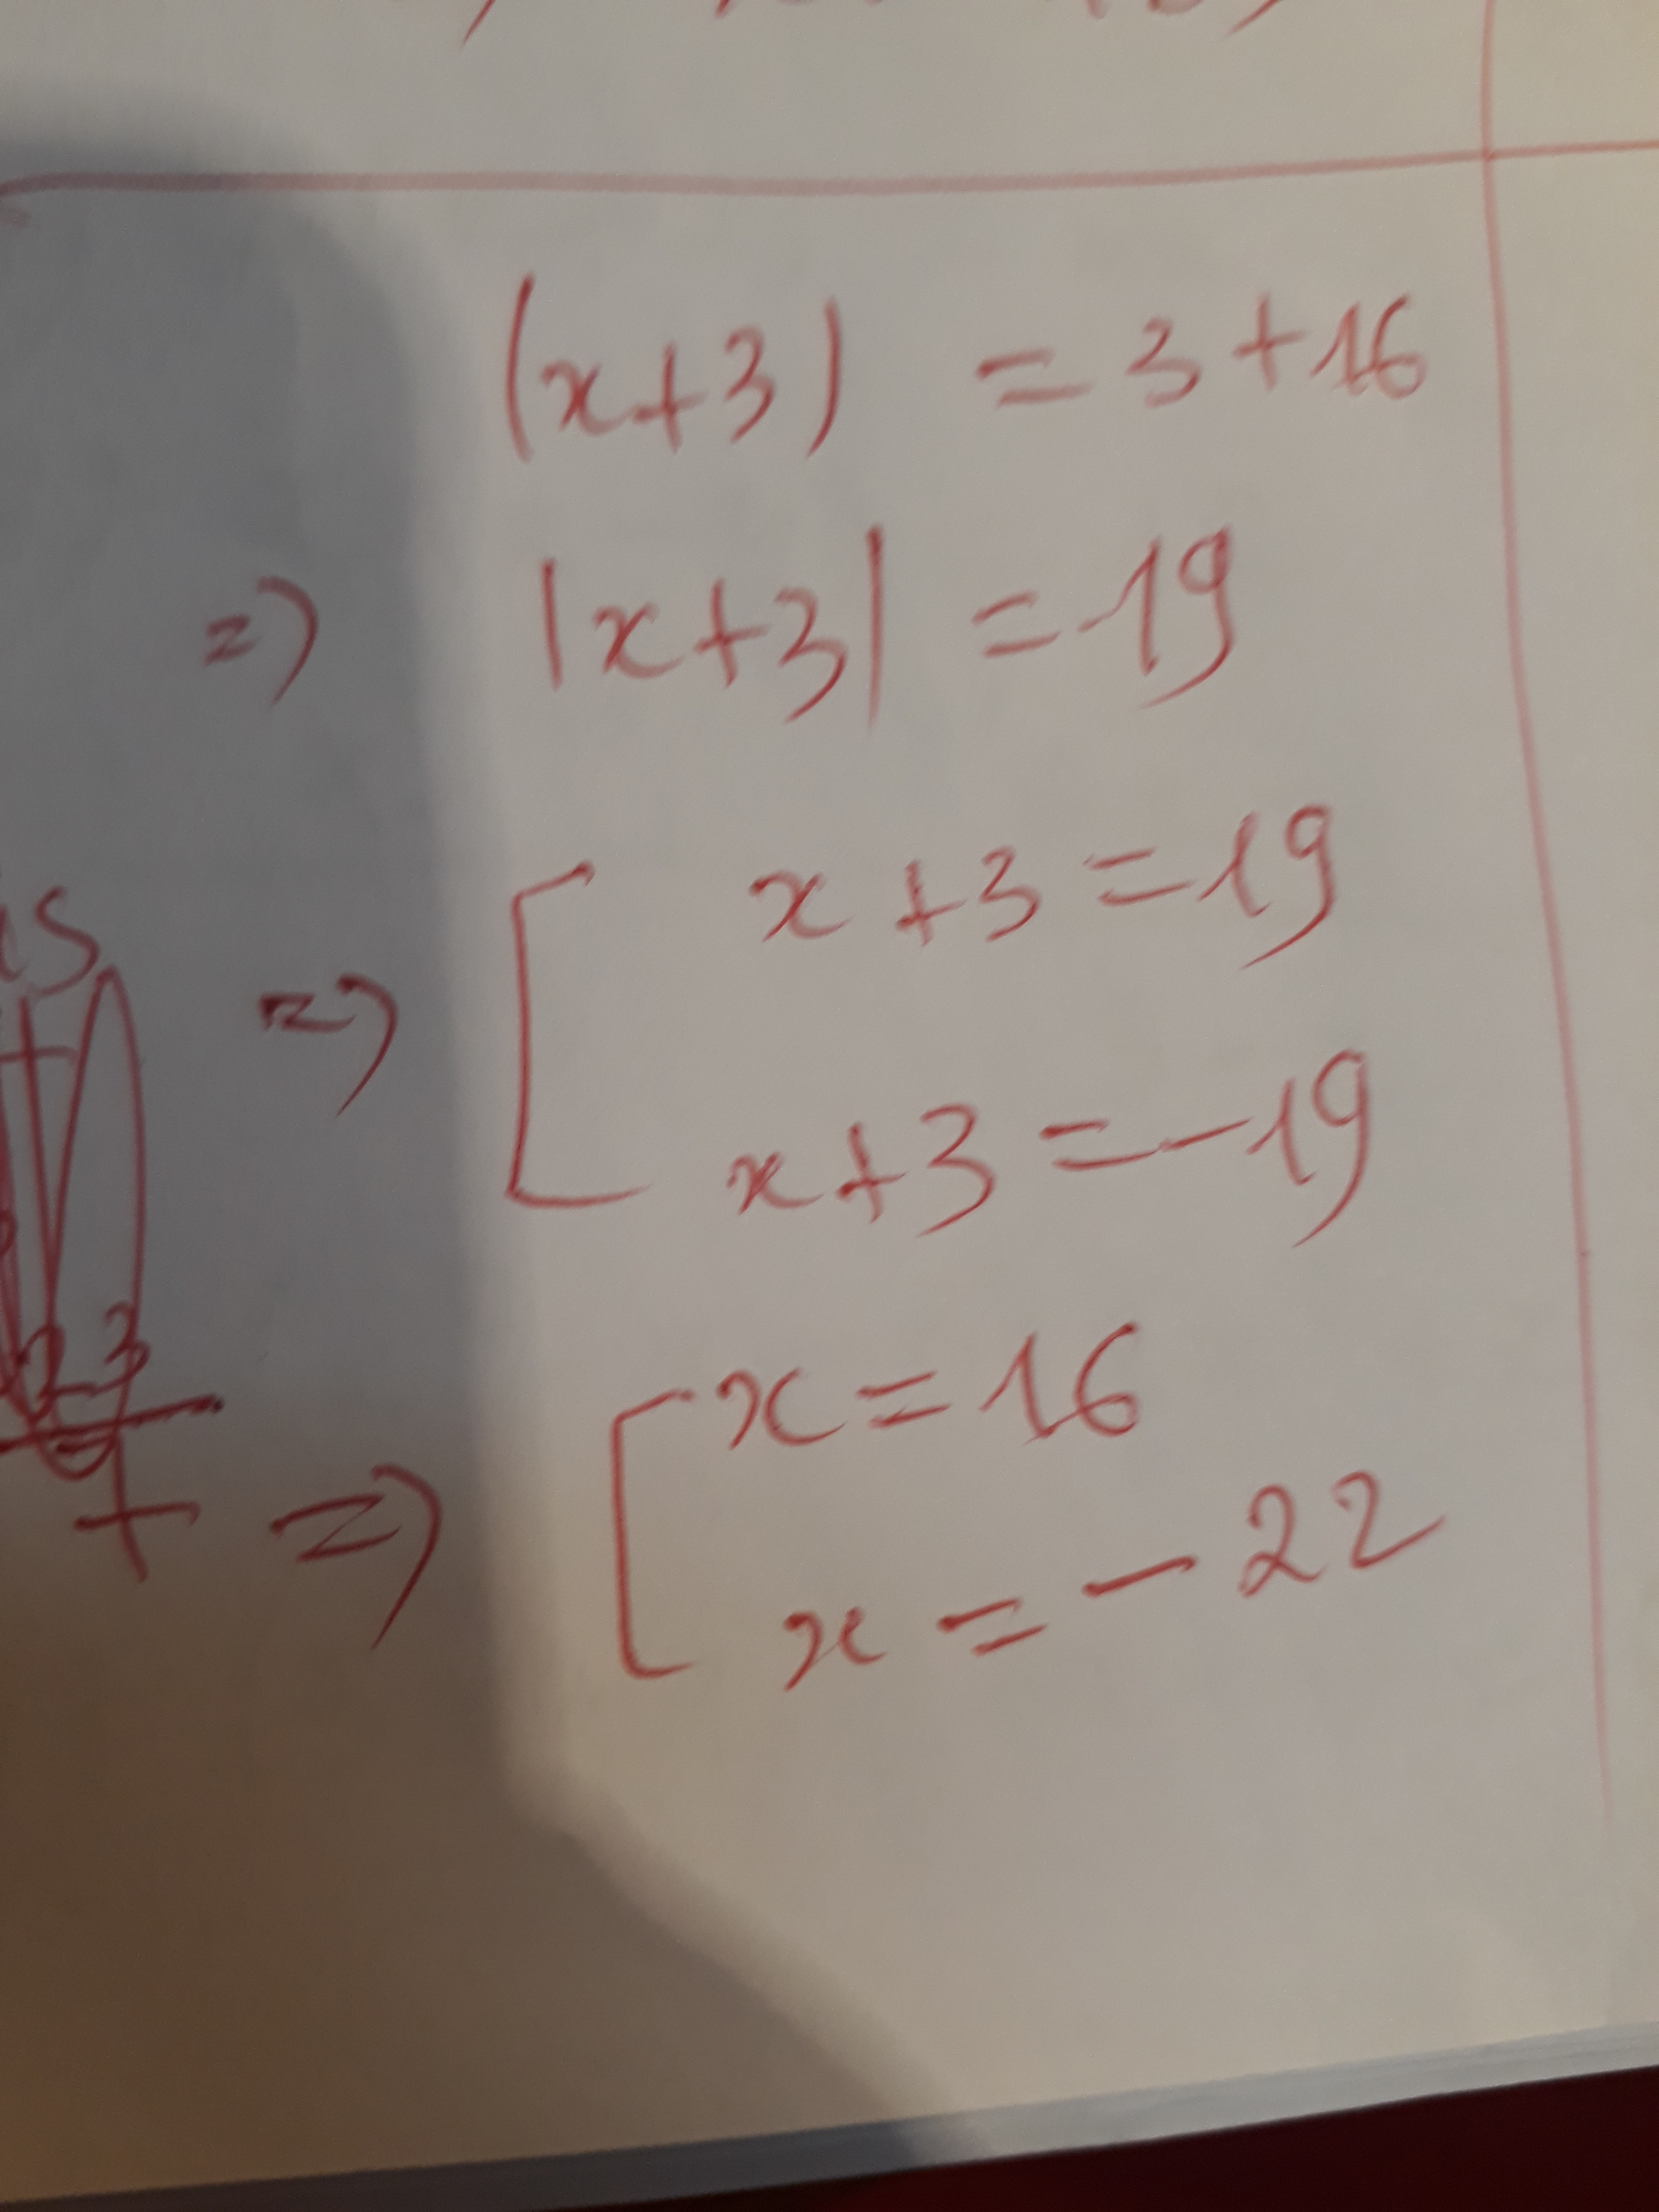 (x+3) = 3+16
=) |x+3| = 19
=) [ x+3 = 19
x+3 = -19
=) [ x = 16
x = - 22